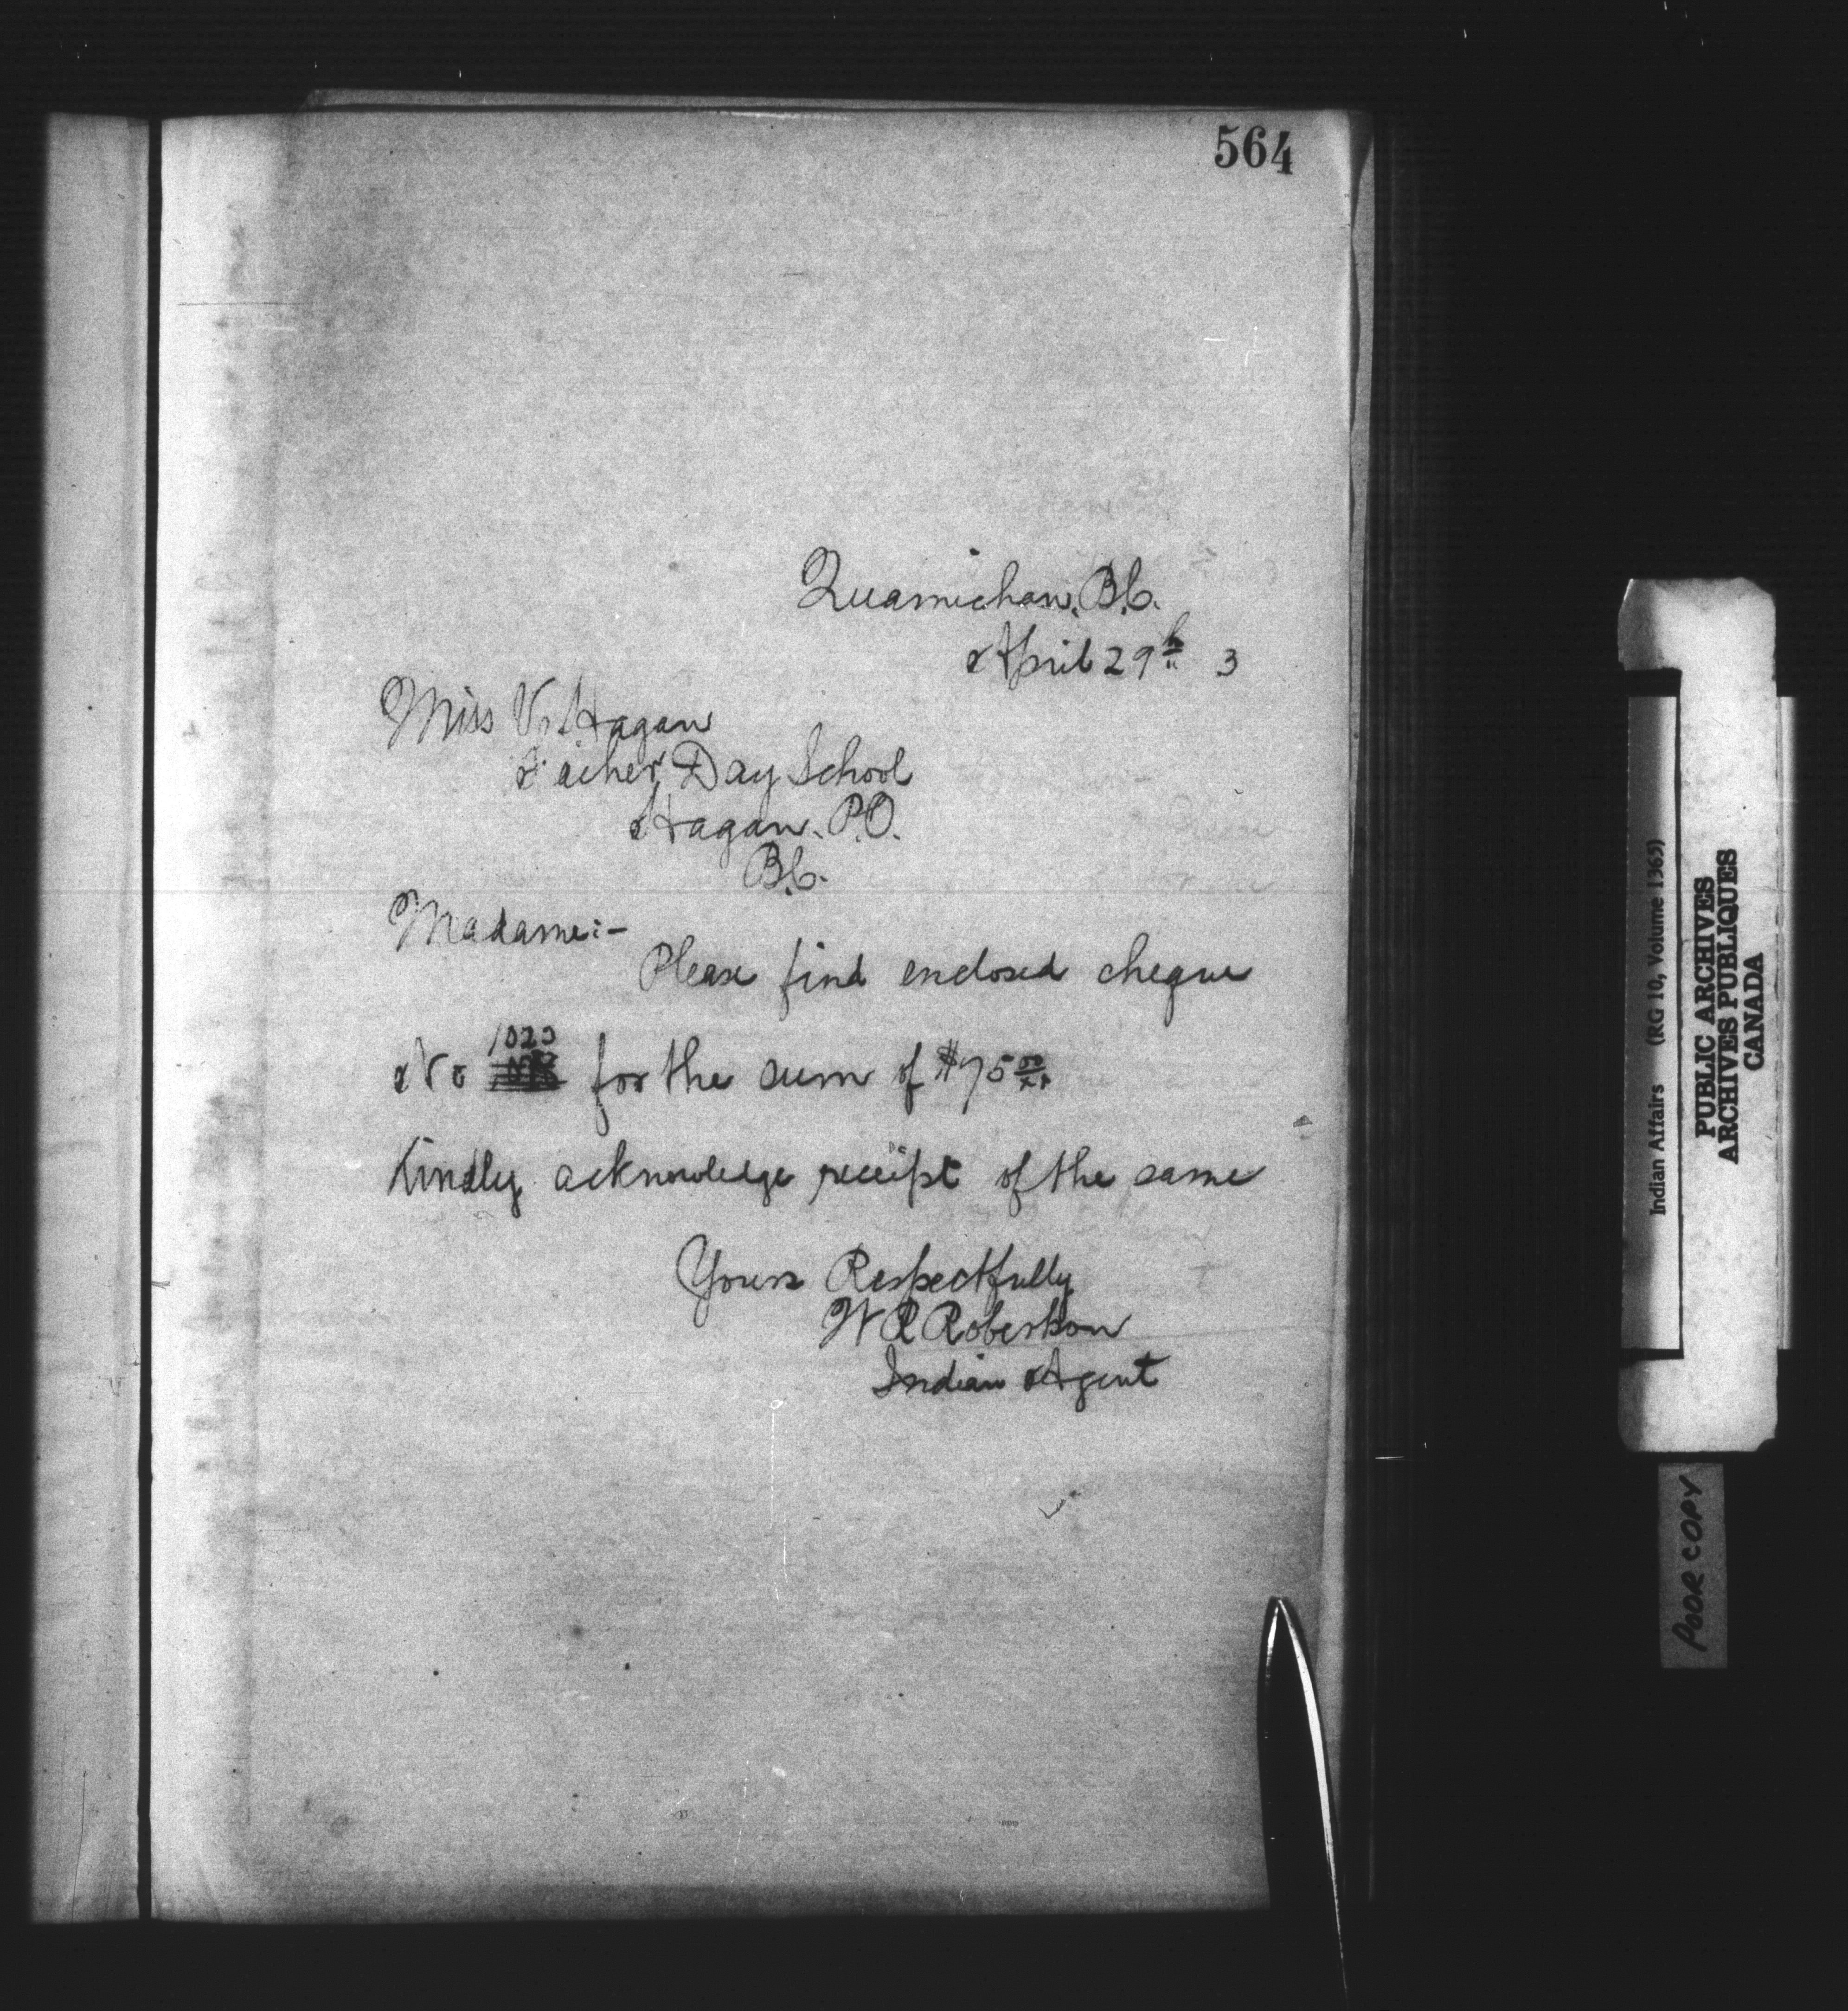 564
Quamichan, B.C.
April 29th 3
Miss V. Hagan
Teacher Day School
Hagan. P.O.
B.C.
Madame:-
Please find enclosed cheque
1020
No for the sum of $75 00/xx
Kindly acknowledge receipt of the same
Yours Respectfully
W R Robertson
Indian Agent
Indian Affairs (RG 10, Volume 1365)
PUBLIC ARCHIVES
ARCHIVES PUBLIQUES
CANADA
POOR COPY